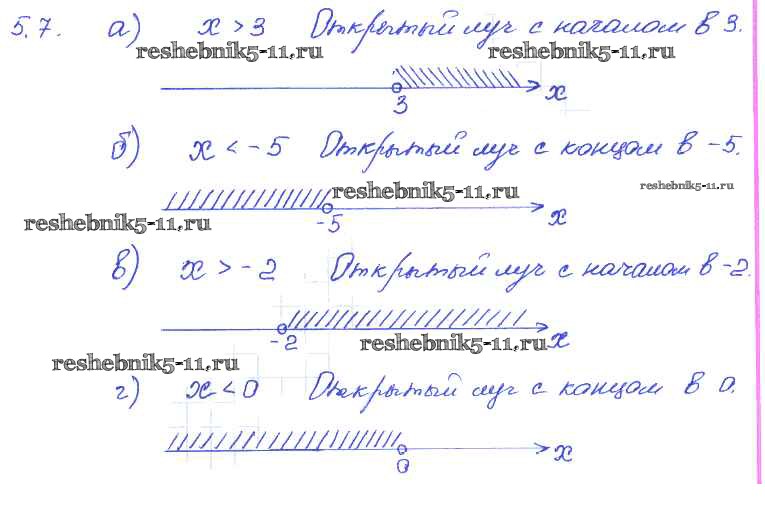 5.7. а) x > 3 Открытый луч с началом в 3.
reshebnik5-11.ru reshebnik5-11.ru
3 x
б) x < -5 Открытый луч с концом в -5.
reshebnik5-11.ru reshebnik5-11.ru
reshebnik5-11.ru -5 x
в) x > -2 Открытый луч с началом в -2.
-2 reshebnik5-11.ru x
reshebnik5-11.ru
г) x < 0 Открытый луч с концом в 0.
0 x